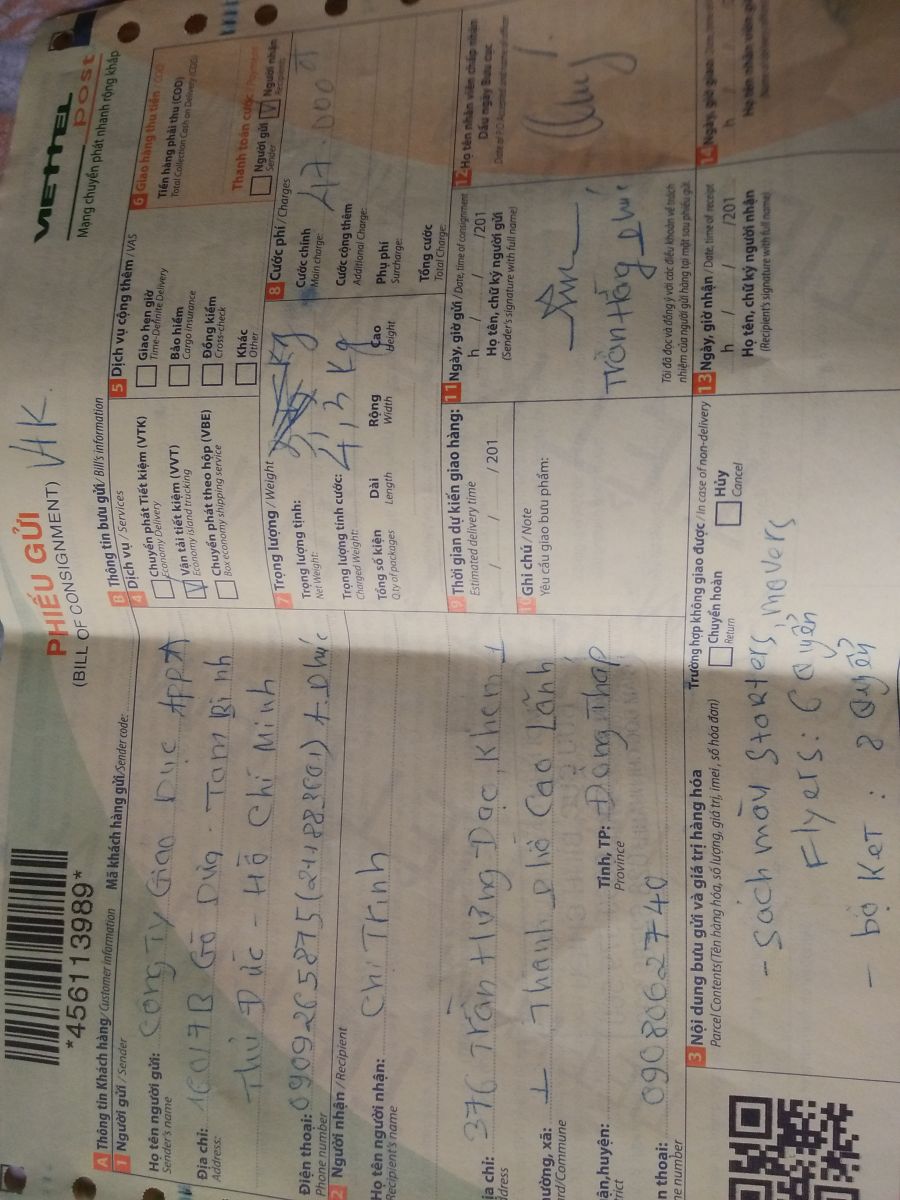 VIETTEL
post
Mạng chuyển phát nhanh rộng khắp
PHIẾU GỬI
(BILL OF CONSIGNMENT)
VTK
*456113989*
A Thông tin Khách hàng / Customer information
Mã khách hàng gửi/Sender code:
1 Người gửi / Sender
Họ tên người gửi: Công Ty Giáo Dục APPA
Sender's name
Địa chỉ: 160/7B Gò Dưa. Tam Bình
Address:
Thủ Đức - Hồ Chí Minh
Điện thoại: 0909265875
Phone number
2 Người nhận / Recipient
Họ tên người nhận: Chị Trinh
Recipient's name
ịa chỉ: 376 Trần Hưng Đạo, Khóm 1
ddress
ường, xã: 1 Thành phố Cao Lãnh
rd/Commune
ận,huyện:
rict
Tỉnh, TP: Đồng Tháp
Province
n thoại: 09080627740
ne number
3 Nội dung bưu gửi và giá trị hàng hóa
Parcel Contents(Tên hàng hóa, số lượng, giá trị, imei, số hóa đơn)
- Sách máy Starters, movers
Flyers: 6 quyển
- bộ KET: 8 quyển
B Thông tin bưu gửi/ Bill's information
4 Dịch vụ / Services
Chuyển phát Tiết kiệm (VTK)
Economy Delivery
V Vận tải tiết kiệm (VVT)
Economy island trucking
Chuyển phát theo hộp (VBE)
Box economy shipping service
5 Dịch vụ cộng thêm / VAS
Giao hẹn giờ
Time-Definite Delivery
Bảo hiểm
Cargo insurance
Đồng kiểm
Cross-check
Khác
Other
6 Giao hàng thu tiền / COD
Tiền hàng phải thu (COD)
Total Collection Cash on Delivery (COD)
Thanh toán cước / Payment
Người gửi
Sender
V Người nhận
Recipient
7 Trọng lượng / Weight
Trọng lượng tịnh:
Net Weight:
Trọng lượng tính cước: 4,3 kg
Charged Weight:
Tổng số kiện
Q.ty of packages
Dài
Length
Rộng
Width
Cao
Height
8 Cước phí / Charges
Cước chính 47.000
Main charge:
Cước cộng thêm
Additional Charge:
Phụ phí
Surcharge:
Tổng cước
Total Charge:
9 Thời gian dự kiến giao hàng:
Estimated delivery time
/ / 201
10 Ghi chú / Note
Yêu cầu giao bưu phẩm:
11 Ngày, giờ gửi / Date, time of consignment
h / / /201
Họ tên, chữ ký người gửi
(Sender's signature with full name)
Trần Hằng
Tôi đã đọc và đồng ý với các điều khoản về trách
nhiệm của người gửi hàng tại mặt sau phiếu gửi
12 Họ tên nhân viên chấp nhận
Dấu ngày Bưu cục
Trường hợp không giao được / In case of non-delivery
Chuyển hoàn
Return
Hủy
Cancel
13 Ngày, giờ nhận / Date, time of receipt
h / / /201
Họ tên, chữ ký người nhận
(Recipient's signature with full name)
14 Ngày, giờ giao
h /
Họ tên nhân viên